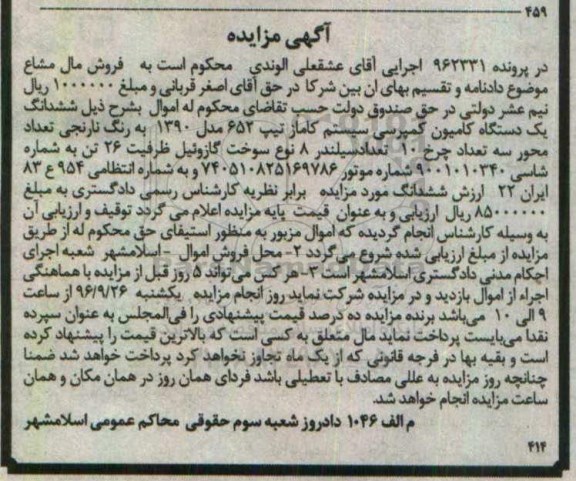 ۴۵۹
آگهی مزایده
در پرونده ۹۶۲۳۳۱ اجرایی آقای عشقعلی الوندی محکوم است به فروش مال مشاع
موضوع دادنامه و تقسیم بهای آن بین شرکا در حق آقای اصغر قربانی و مبلغ ۱۰۰۰۰۰۰ ریال
نیم عشر دولتی در حق صندوق دولت حسب تقاضای محکوم له اموال بشرح ذیل ششدانگ
یک دستگاه کامیون کمپرسی سیستم کاماز تیپ ۶۵۲ مدل ۱۳۹۰ به رنگ نارنجی تعداد
محور سه تعداد چرخ ۱۰ تعدادسیلندر ۸ نوع سوخت گازوئیل ظرفیت ۲۶ تن به شماره
شاسی ۹۰۰۱۰۱۰۳۴۰ شماره موتور ۷۴۰۵۱۰۸۲۵۱۶۹۷۸۶ و به شماره انتظامی ۹۵۴ ع ۸۳
ایران ۲۲ ارزش ششدانگ مورد مزایده برابر نظریه کارشناس رسمی دادگستری به مبلغ
۸۵۰۰۰۰۰۰۰ ریال ارزیابی و به عنوان قیمت پایه مزایده اعلام می گردد توقیف و ارزیابی آن
به وسیله کارشناس انجام گردیده که اموال مزبور به منظور استیفای حق محکوم له از طریق
مزایده از مبلغ ارزیابی شده شروع می‌گردد ۲- محل فروش اموال - اسلامشهر شعبه اجرای
احکام مدنی دادگستری اسلامشهر است ۳- هر کس می‌تواند ۵ روز قبل از مزایده با هماهنگی
اجراء از اموال بازدید و در مزایده شرکت نماید روز انجام مزایده یکشنبه ۹۶/۹/۲۶ از ساعت
۹ الی ۱۰ می‌باشد برنده مزایده ده درصد قیمت پیشنهادی را فی‌المجلس به عنوان سپرده
نقدا می‌بایست پرداخت نماید مال متعلق به کسی است که بالاترین قیمت را پیشنهاد کرده
است و بقیه بها در فرجه قانونی که از یک ماه تجاوز نخواهد کرد پرداخت خواهد شد ضمنا
چنانچه روز مزایده به عللی مصادف با تعطیلی باشد فردای همان روز در همان مکان و همان
ساعت مزایده انجام خواهد شد.
م الف ۱۰۴۶ دادروز شعبه سوم حقوقی محاکم عمومی اسلامشهر
۴۱۴